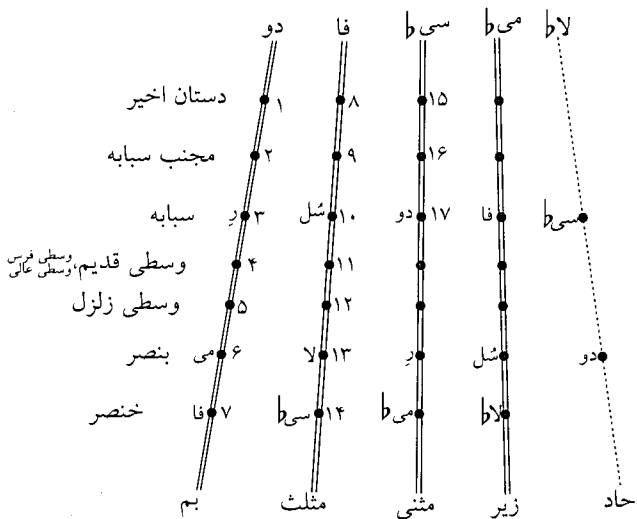 دو فا سی♭ می♭ لا♭
دستان اخیر ۱ ۸ ۱۵
مجنب سبابه ۲ ۹ ۱۶
سبابه رِ ۳ سُل ۱۰ دو ۱۷ فا سی♭
وسطی قدیم، وسطی فرس وسطی عالی ۴ ۱۱
وسطی زلزل ۵ ۱۲
بنصر می ۶ لا ۱۳ رِ سُل دو
خنصر فا ۷ سی♭ ۱۴ می♭ لا♭
بم مثلث مثنی زیر حاد